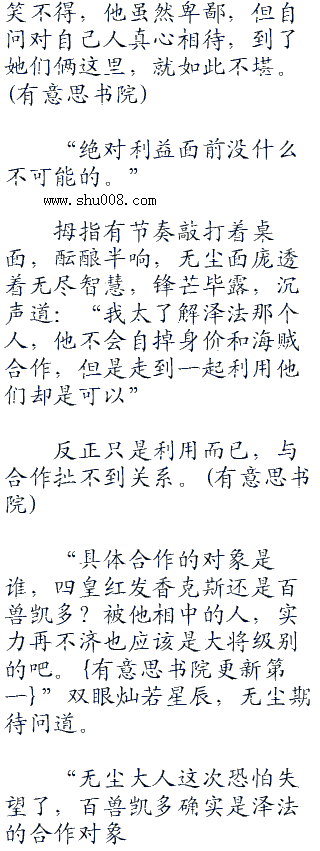 笑不得，他虽然卑鄙，但自
问对自己人真心相待，到了
她们俩这里，就如此不堪。
(有意思书院)
“绝对利益面前没什么
不可能的。”
www.shu008.com
拇指有节奏敲打着桌
面，酝酿半响，无尘面庞透
着无尽智慧，锋芒毕露，沉
声道：“我太了解泽法那个
人，他不会自掉身价和海贼
合作，但是走到一起利用他
们却是可以”
反正只是利用而已，与
合作扯不到关系。(有意思书
院)
“具体合作的对象是
谁，四皇红发香克斯还是百
兽凯多？被他相中的人，实
力再不济也应该是大将级别
的吧。{有意思书院更新第
一}”双眼灿若星辰，无尘期
待问道。
“无尘大人这次恐怕失
望了，百兽凯多确实是泽法
的合作对象